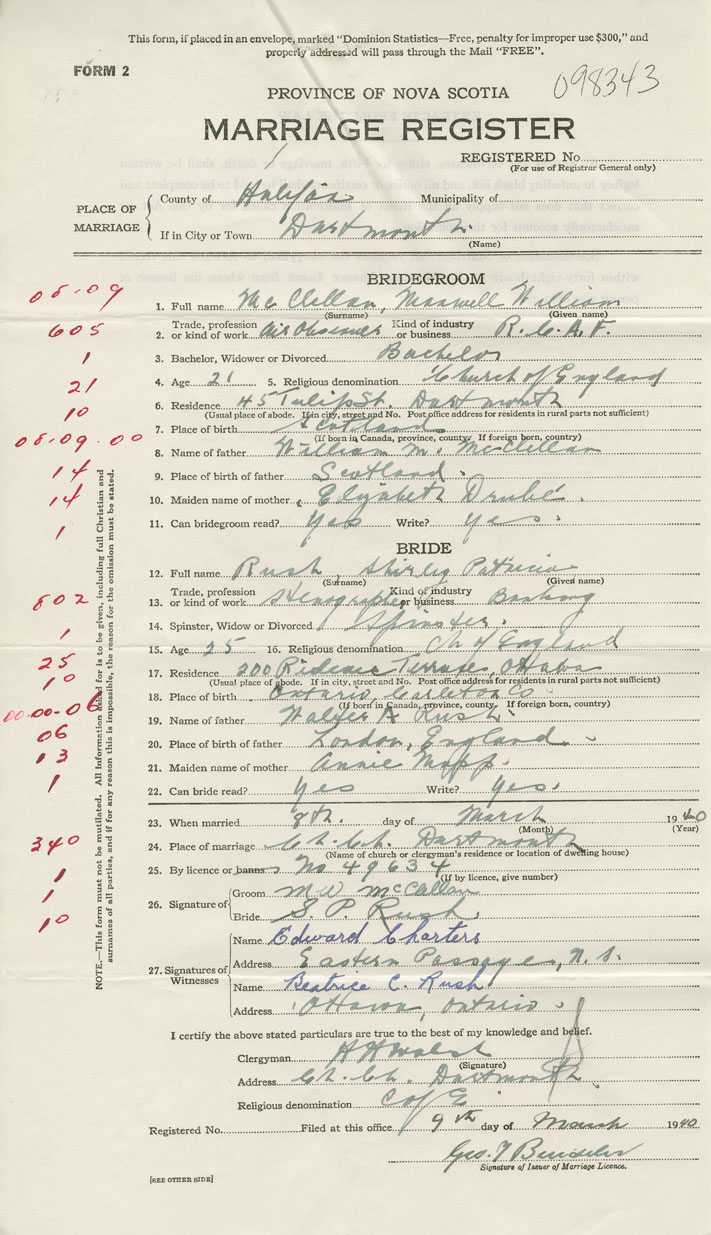 This form, if placed in an envelope, marked "Dominion Statistics—Free, penalty for improper use $300," and
properly addressed will pass through the Mail "FREE".
FORM 2
098343
PROVINCE OF NOVA SCOTIA
MARRIAGE REGISTER
REGISTERED No.
(For use of Registrar General only)
PLACE OF MARRIAGE
County of Halifax Municipality of
If in City or Town Dartmouth
(Name)
BRIDEGROOM
05.09
1. Full name McClellan, Maxwell William
(Surname) (Given name)
605
2. Trade, profession or kind of work Air Observer Kind of industry or business R.C.A.F.
1
3. Bachelor, Widower or Divorced Bachelor
21
4. Age 21 5. Religious denomination Church of England
10
6. Residence 45 Tulip St. Dartmouth
(Usual place of abode. If in city, street and No. Post office address for residents in rural parts not sufficient)
05.09.00
7. Place of birth Scotland
(If born in Canada, province, county. If foreign born, country)
8. Name of father William M. McClellan
14
9. Place of birth of father Scotland
14
10. Maiden name of mother Elizabeth
1
11. Can bridegroom read? Yes Write? Yes.
BRIDE
12. Full name Rush Shirley Patricia
(Surname) (Given name)
802
13. Trade, profession or kind of work Stenographer Kind of industry or business Banking
1
14. Spinster, Widow or Divorced Spinster.
25
15. Age 25 16. Religious denomination Ch of England
10
17. Residence 200 Terrace, Ottawa
(Usual place of abode. If in city, street and No. Post office address for residents in rural parts not sufficient)
00.00-06
18. Place of birth Ontario, Carleton Co
(If born in Canada, province, county. If foreign born, country)
06
19. Name of father Walter A Rush
13
20. Place of birth of father London, England
21. Maiden name of mother Annie Mapp.
1
22. Can bride read? Yes Write? Yes.
NOTE.—This form must not be mutilated. All information asked for is to be given, including full Christian and
surnames of all parties, and if for any reason this is impossible, the reason for the omission must be stated.
23. When married 8th. day of March 1940
(Month) (Year)
340
24. Place of marriage Ch. Ch. Dartmouth
(Name of church or clergyman's residence or location of dwelling house)
1
25. By licence or banns No 49634
(If by licence, give number)
1
10
26. Signature of
Groom M W McClellan
Bride S. P. Rush
27. Signatures of Witnesses
Name Edward Charters
Address Eastern Passage, N.S.
Name Beatrice C. Rush
Address Ottawa, Ontario
I certify the above stated particulars are true to the best of my knowledge and belief.
Clergyman
(Signature)
Address Ch. Ch. Dartmouth
Religious denomination C of E
Registered No. Filed at this office 9th day of March 1940
Geo. T
Signature of Issuer of Marriage Licence.
[SEE OTHER SIDE]